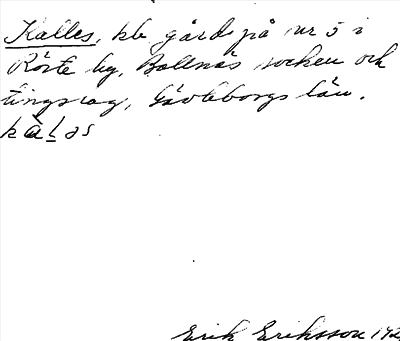 Kalles, kb gård på nr 5 i
Röste by, Bollnäs socken och
tingslag, Gävleborgs län.
kàləs
Erik Eriksson 192